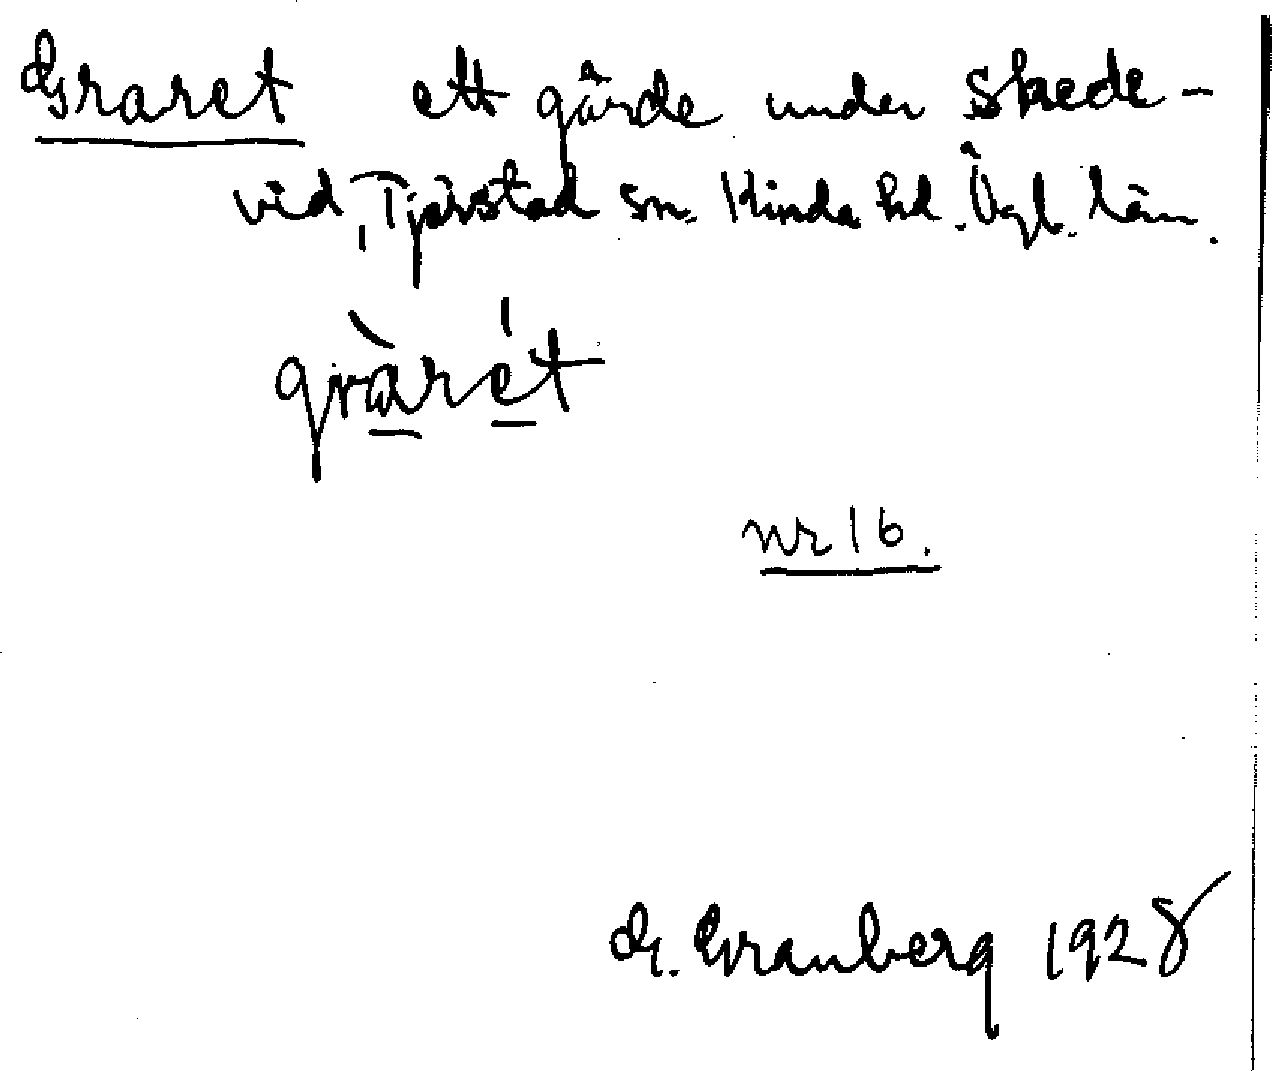 Graret ett gärde under Skede-
vid, Tjärstad sn. Kinda hd. Ögl. län.
gràrét
nr 16.
G. Granberg 1928